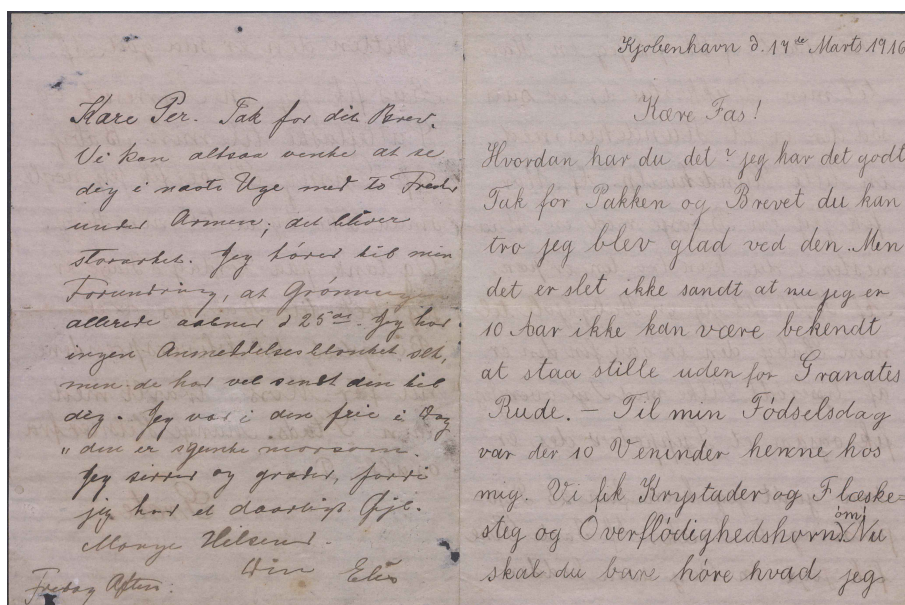 Kære Per. Tak for dit Brev.
Vi kan altsaa vente at se
dig i næste Uge med to
under Armen; det bliver
storartet. Jeg hører til min
Forundring, at Grønning
allerede aabner d 25de. Jeg har
ingen Anmeldelsesblanket set,
men de har vel sendt den til
dig. Jeg var i den frie i Dag
"den er morsom.
Jeg sidder og græder, fordi
jeg har et daarligt Øje.
Mange Hilsener.
Din
Fredag Aften.
Kjøbenhavn d. 17de Marts 1916
Kære Fas!
Hvordan har du det? jeg har det godt
Tak for Pakken og Brevet du kan
tro jeg blev glad ved den. Men
det er slet ikke sandt at nu jeg er
10 Aar ikke kan være bekendt
at staa stille uden for Granates
Rude. — Til min Fødselsdag
var der 10 Veninder henne hos
mig. Vi fik Krystader og Flæske=
steg og Overflødighedshorn. Nu
skal du bare høre hvad jeg